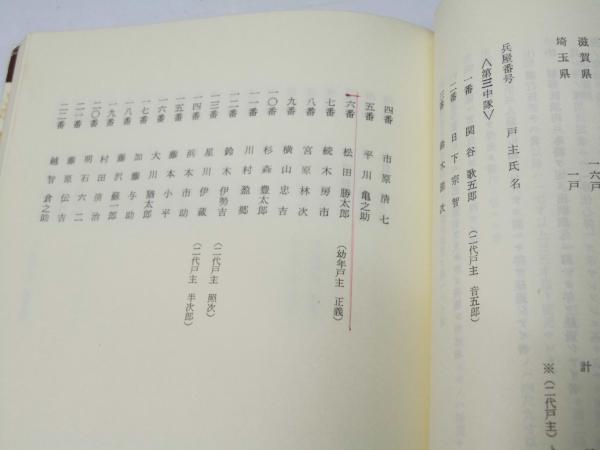 一六戸
滋賀県
一戸
埼玉県
計
※(二代戸主)
兵屋番号　戸主氏名
〈第三中隊〉
一番　関谷歌五郎　(二代戸主　音五郎)
二番　日下宗智
三番　鈴木
四番　市原清七
五番　平川亀之助
六番　松田勝太郎　(幼年戸主　正義)
七番　続木房市
八番　宮原林次
九番　横山忠吉
一〇番　杉森豊太郎
一一番　川村盈郷
一二番　鈴木伊勢吉
一三番　星川伊蔵　(二代戸主　照次)
一四番　浜本市助　(二代戸主　半次郎)
一五番　藤本小平
一六番　大川猶太郎
一七番　加藤与助
一八番　藤沢蘇一郎
一九番　村田清治
二〇番　明石六二
二一番　藤原伝吉
二二番　越智倉之助